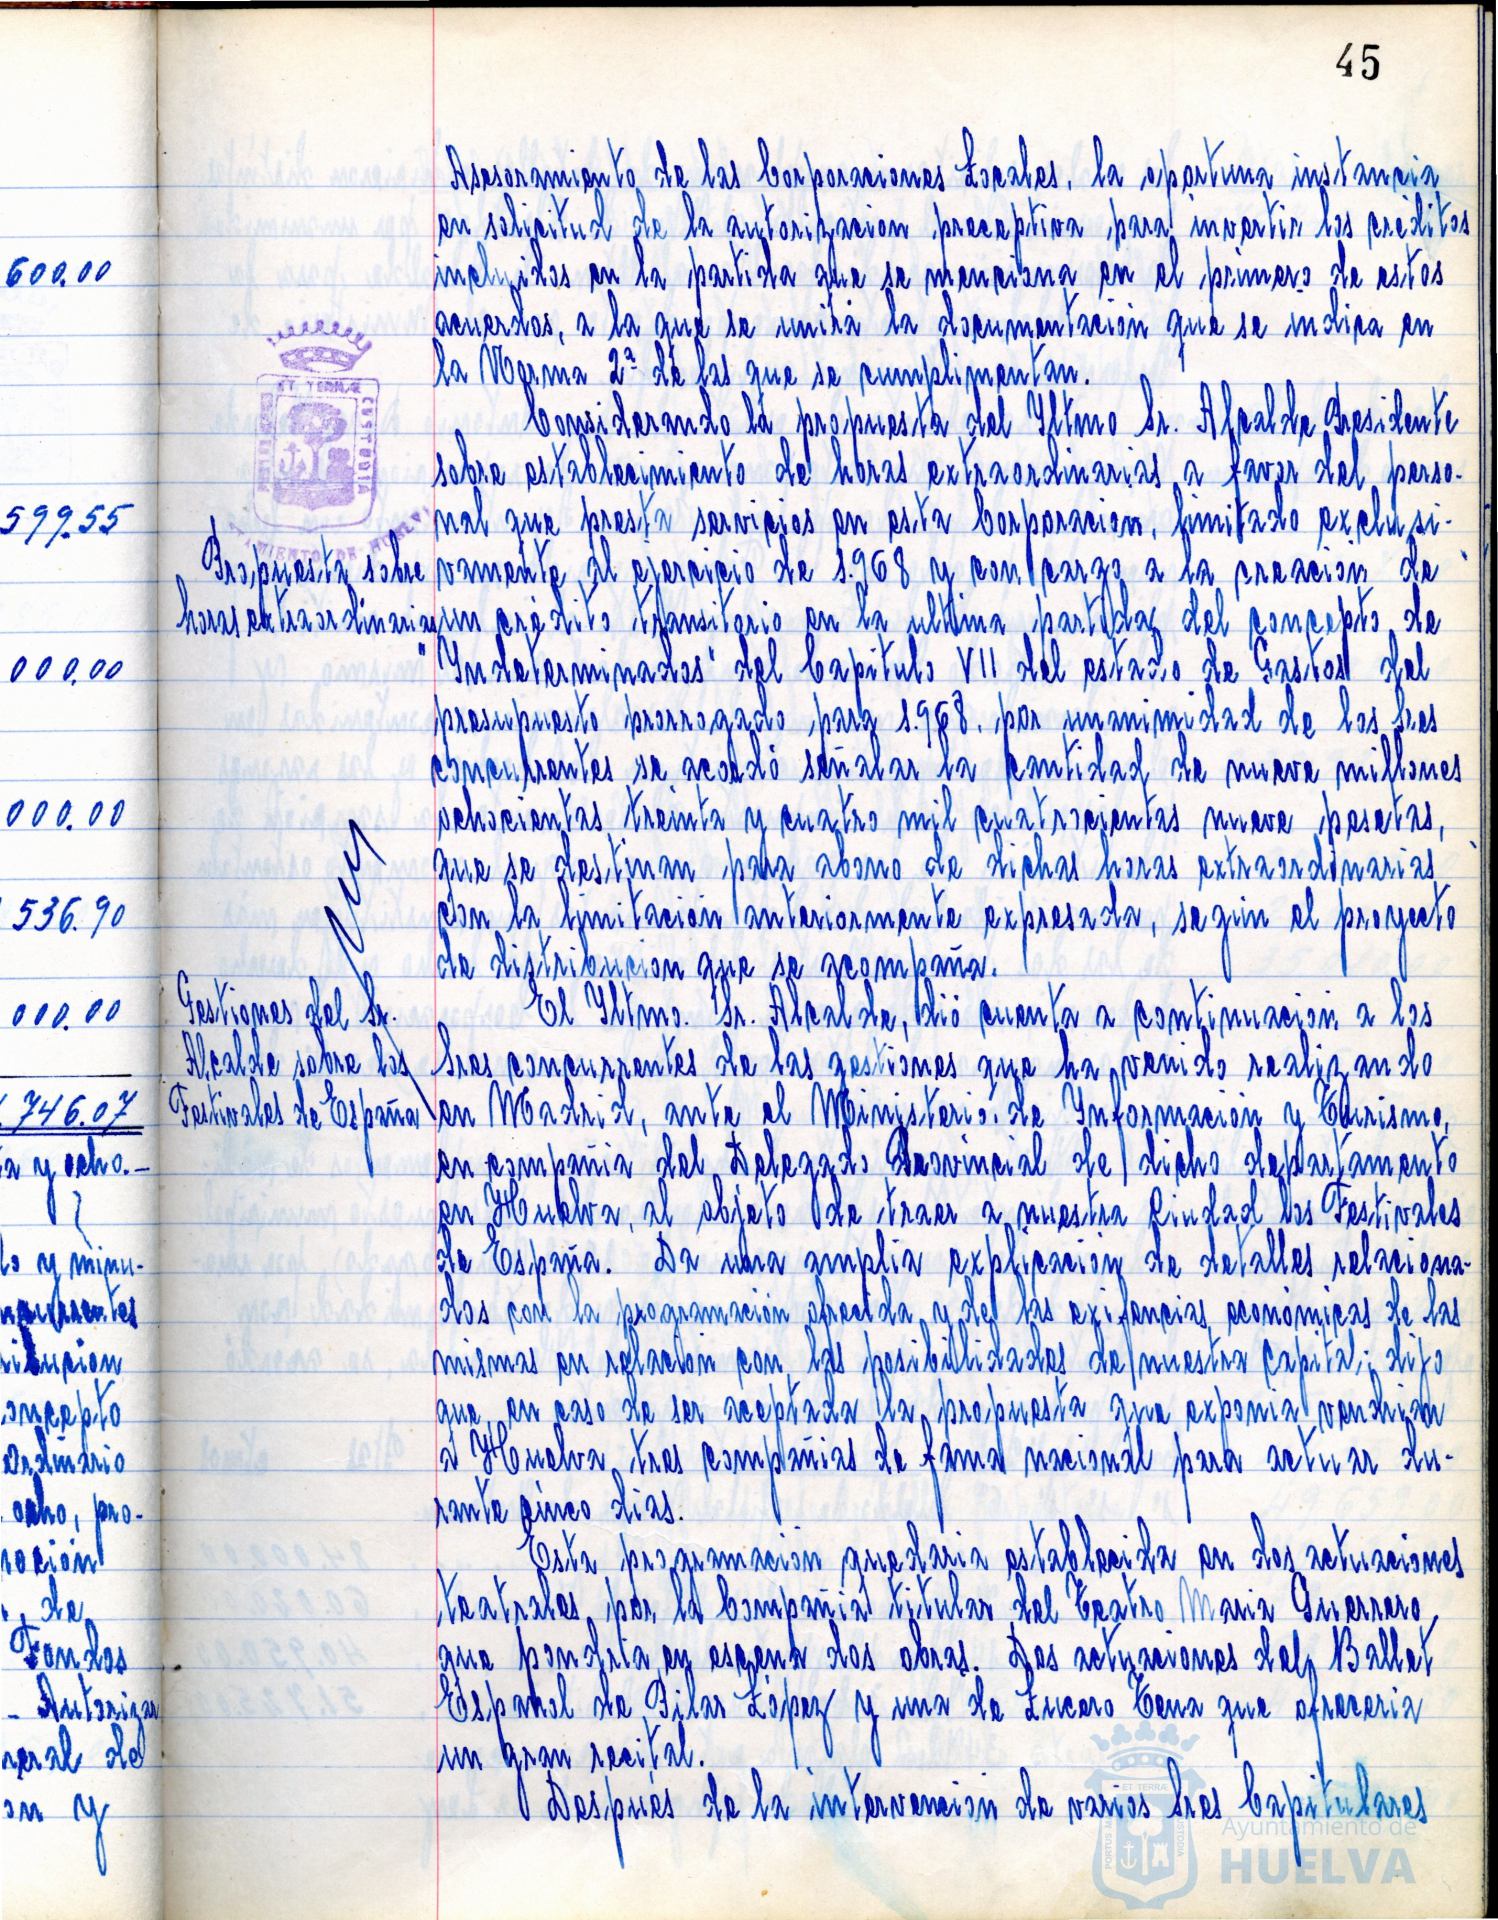 45
600.00
599.55
000.00
000.00
536.90
000.00
746.07
ta y ocho.-
to y minu-
ncurrentes
ribucion
oncepto
ordinario
ocho, pro-
, de
Fondos
- Autorizar
neral de
on y
Asesoramiento de las Corporaciones Locales, la oportuna instancia
en solicitud de la autorizacion preceptiva para invertir los creditos
incluidos en la partida que se menciona en el primero de estos
acuerdos, a la que se unirá la documentación que se indica en
la Norma 2ª de las que se cumplimentan.
Propuesta sobre
horas extraordinarias
Considerando la propuesta del Yltmo Sr. Alcalde Presidente
sobre establecimiento de horas extraordinarias a favor del perso-
nal que presta servicios en esta Corporacion, limitado exclusi-
vamente al ejercicio de 1.968 y con cargo a la creacion de
un crédito transitorio en la ultima partida del concepto de
"Yndeterminados" del Capitulo VII del estado de Gastos del
presupuesto prorrogado para 1.968, por unanimidad de los Sres
concurrentes se acordó señalar la cantidad de nueve millones
ochocientas treinta y cuatro mil cuatrocientas nueve pesetas,
que se destinan para abono de dichas horas extraordinarias
con la limitación anteriormente expresada, según el proyecto
de distribucion que se acompaña.
Gestiones del Sr.
Alcalde sobre los
Festivales de España
El Yltmo. Sr. Alcalde, dió cuenta a continuacion a los
Sres concurrentes de las gestiones que ha venido realizando
en Madrid, ante el Ministerio de Ynformación y Turismo,
en compañia del Delegado Provincial de dicho departamento
en Huelva, al objeto de traer a nuestra Ciudad los Festivales
de España. Da una amplia explicación de detalles relaciona-
dos con la programación ofrecida y de las exigencias económicas de las
mismas en relación con las posibilidades de nuestra Capital; dijo
que, en caso de ser aceptada la propuesta que exponia vendrian
a Huelva tres compañias de fama nacional para actuar du-
rante cinco dias.
Esta programacion quedaria establecida en dos actuaciones
teatrales por la Compañia titular del Teatro Maria Guerrero,
que pondria en escena dos obras. Dos actuaciones del Ballet
Español de Pilar López y una de Lucero Tena que ofreceria
un gran recital.
Después de la intervención de varios Sres Capitulares
Ayuntamiento de
HUELVA